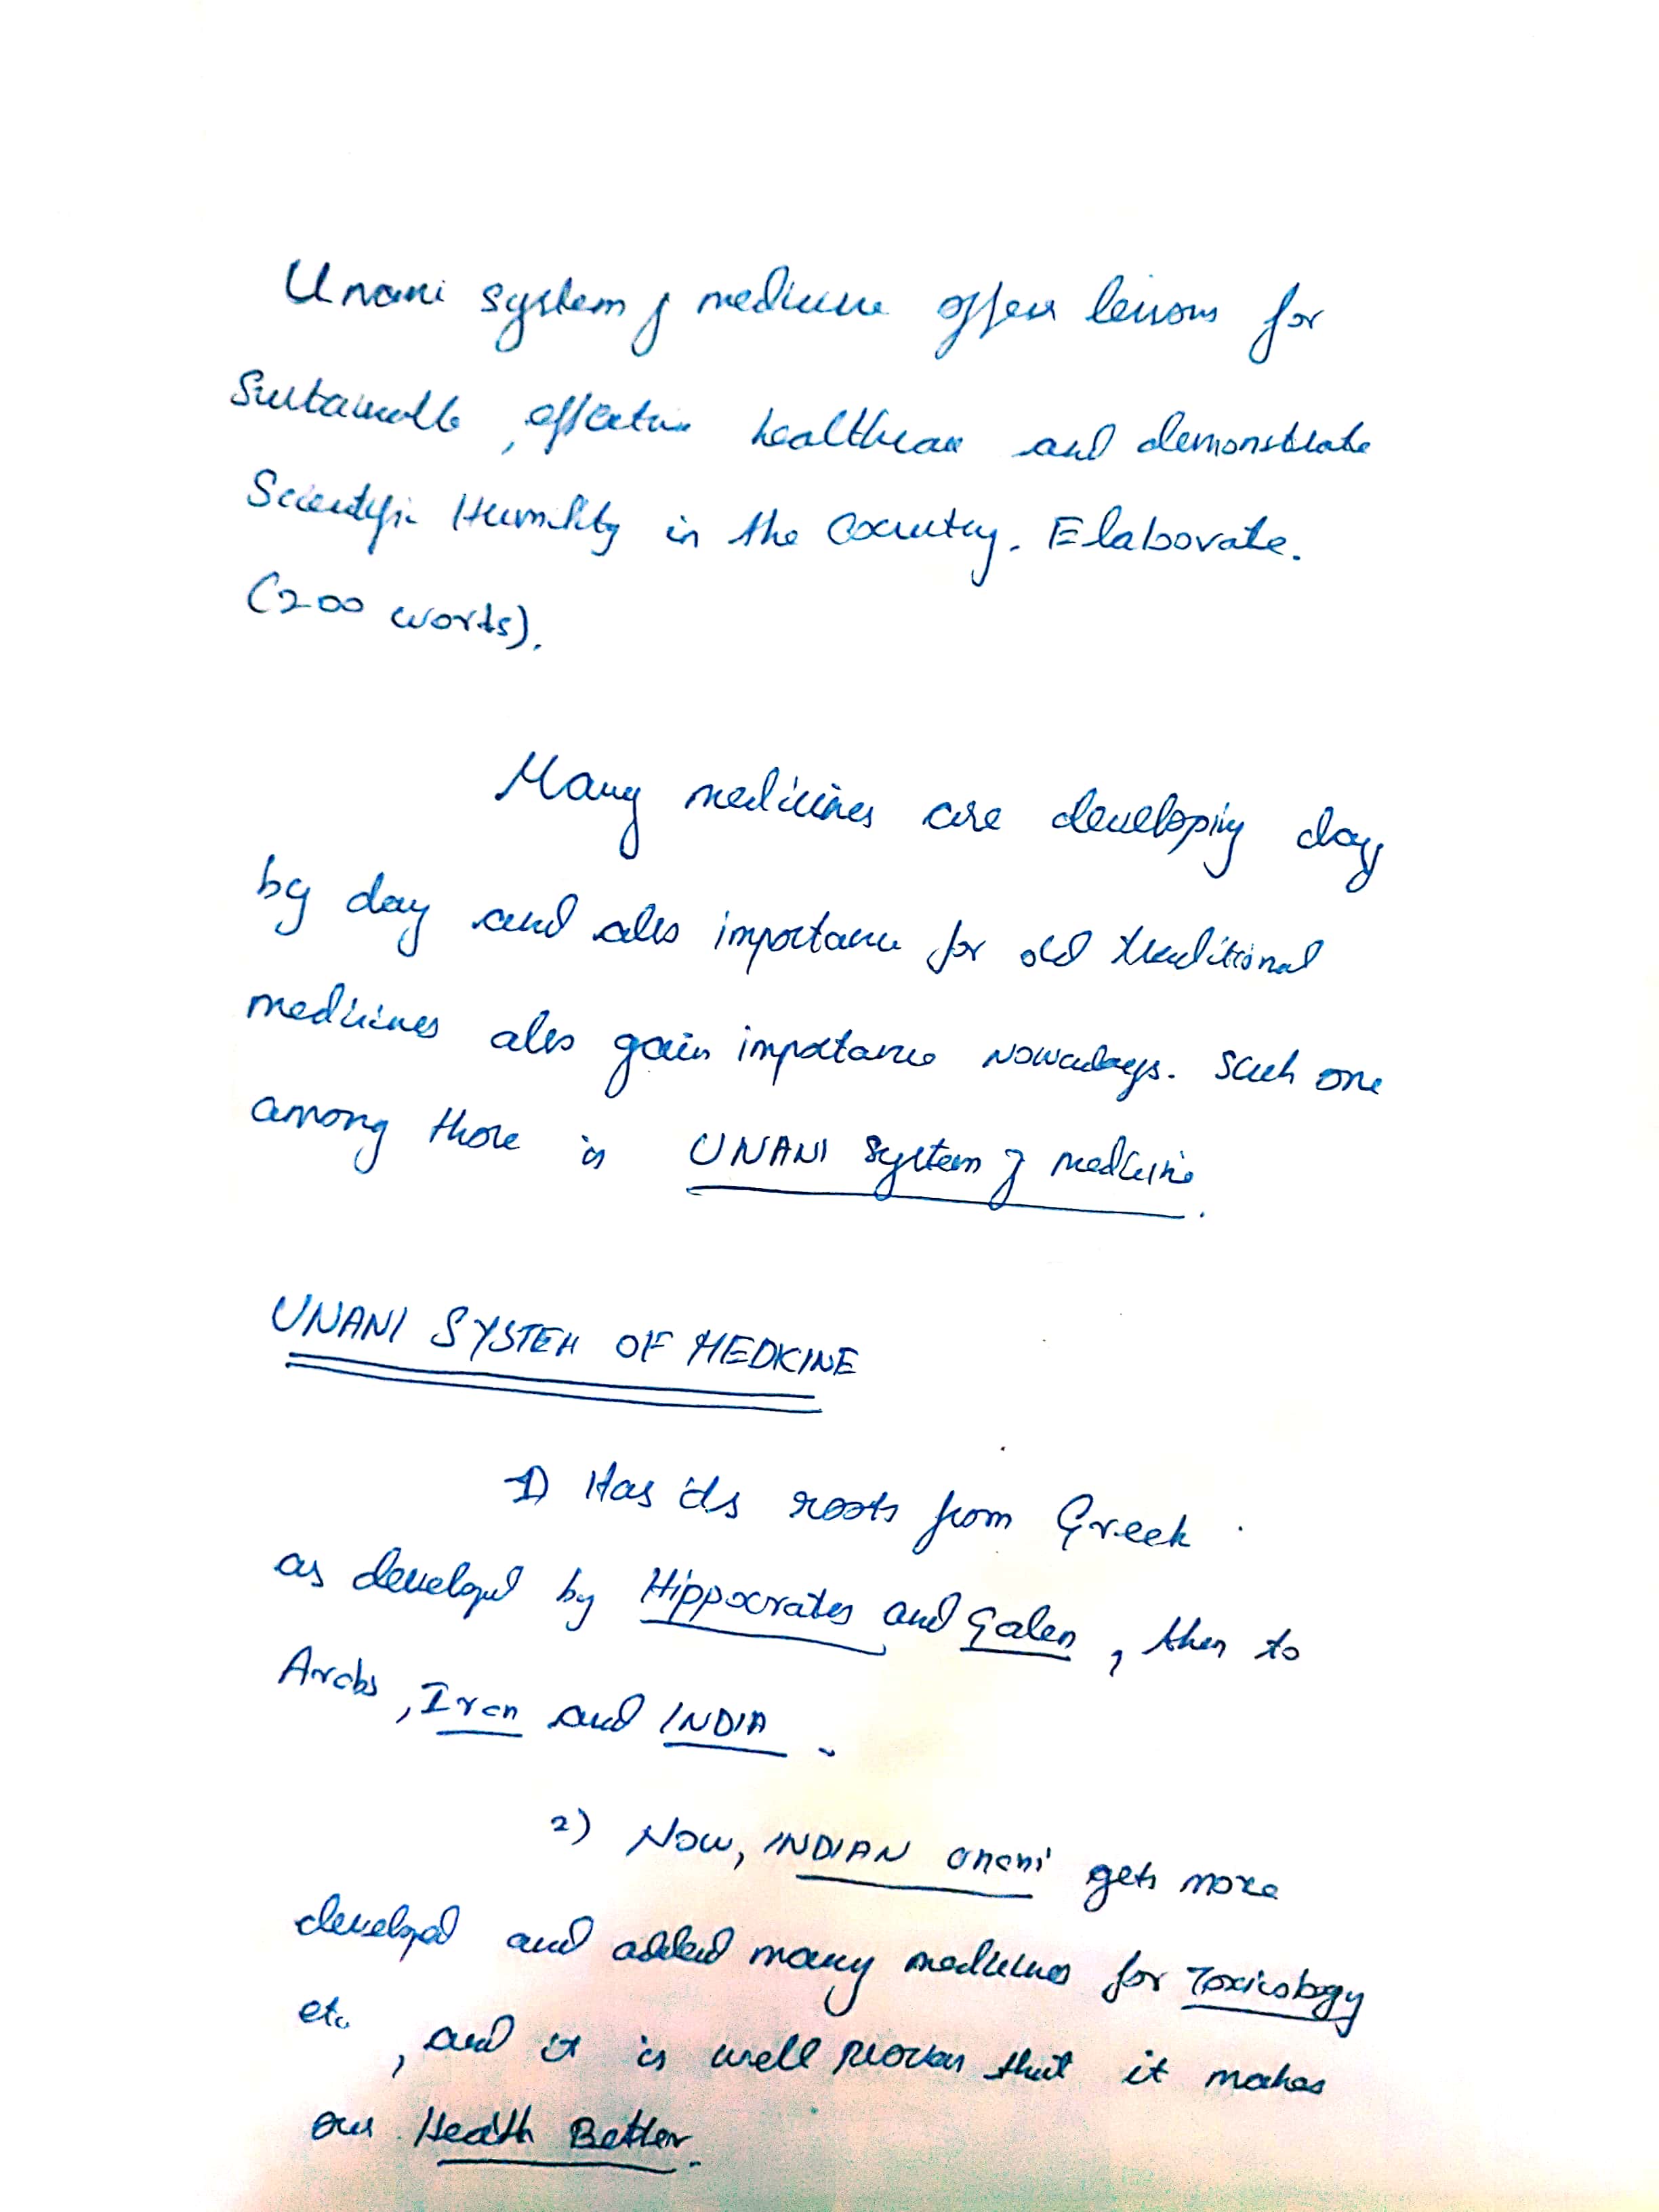 Unani system of medicine offers lessons for
Sustainable, effective healthcare and demonstrate
Scientific Humility in the Country. Elaborate.
(200 words).
Many medicines are developing day
by day and also importance for old traditional
medicines also gain importance nowadays. Such one
among those is UNANI System of medicine.
UNANI SYSTEM OF MEDICINE
1) Has its roots from Greek
as developed by Hippocrates and Galen, then to
Arabs, Iran and INDIA.
2) Now, INDIAN unani gets more
developed and added many medicines for Toxicology
etc, and it is well proven that it makes
our Health Better.